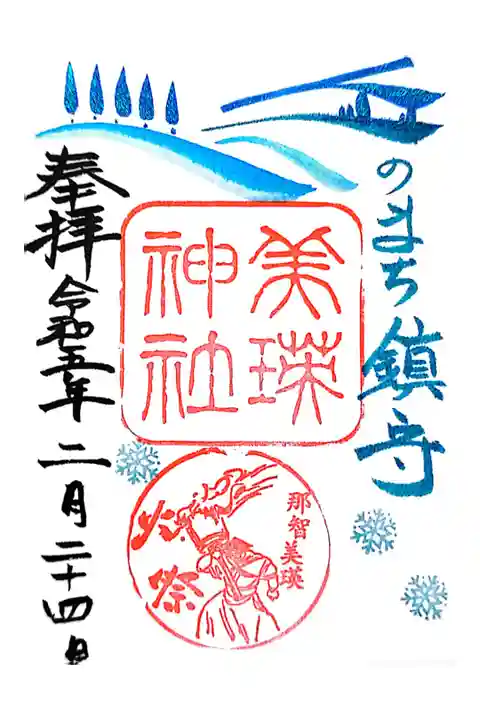 のまち鎮守
美瑛
神社
那智美瑛
火祭
奉拝 令和五年 二月二十四日